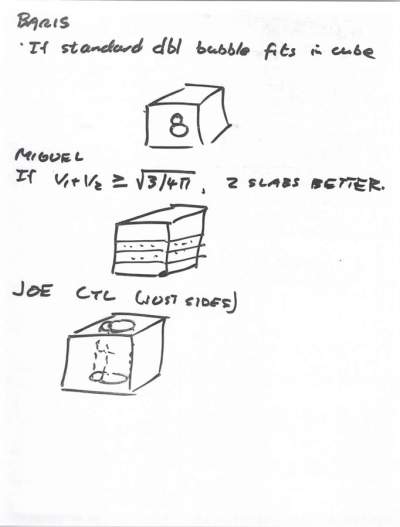 BARIS
· If standard dbl bubble fits in cube
MIGUEL
If V₁+V₂ ≥ √3/4π, 2 SLABS BETTER.
JOE CYL (JUST SIDES)